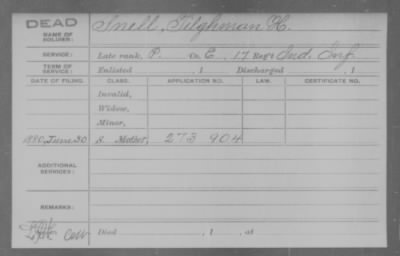 DEAD
NAME OF SOLDIER: Snell, Tilghman H.
SERVICE: Late rank, P. Co. E, 17 Reg't Ind. Inf.
TERM OF SERVICE: Enlisted , 1 Discharged , 1
DATE OF FILING. CLASS. APPLICATION NO. LAW. CERTIFICATE NO.
Invalid,
Widow,
Minor,
1880, June 30 S. Mother, 273 904
ADDITIONAL SERVICES:
REMARKS:
Died , 1 , at